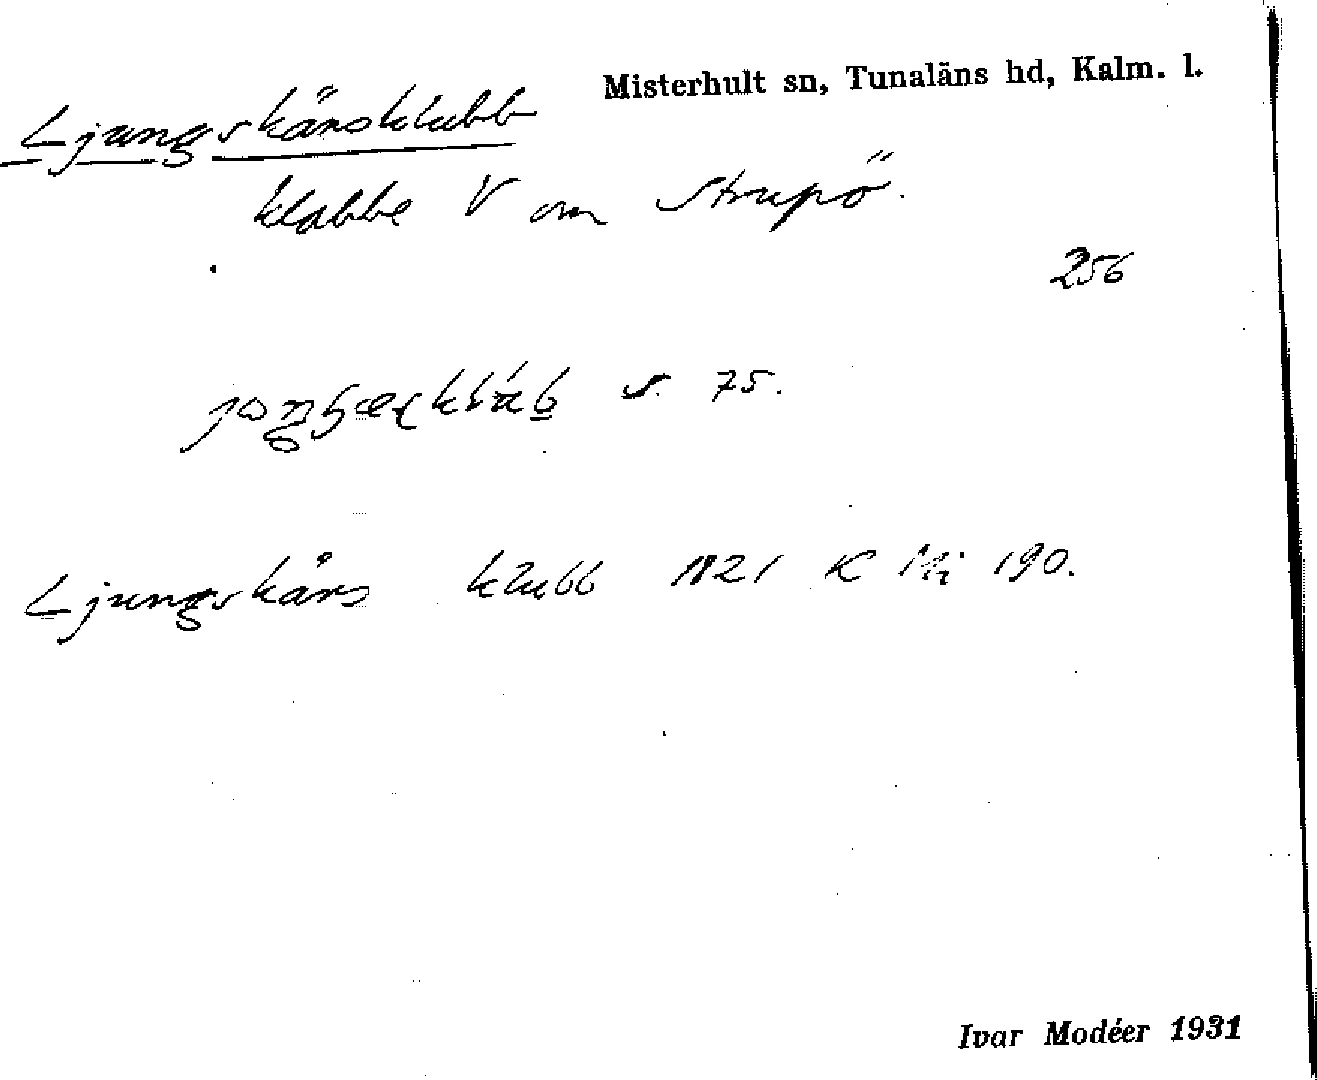 Misterhult sn, Tunaläns hd, Kalm. l.
Ljungskärsklubb
klabbe V om Strupö.
256
s. 75.
Ljungskärs klubb 1821 K Mi 190.
Ivar Modéer 1931